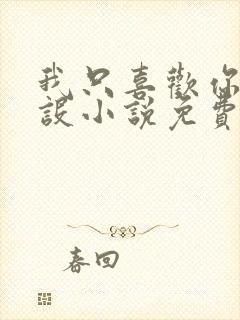 我只喜歡你
設小說免費
春回